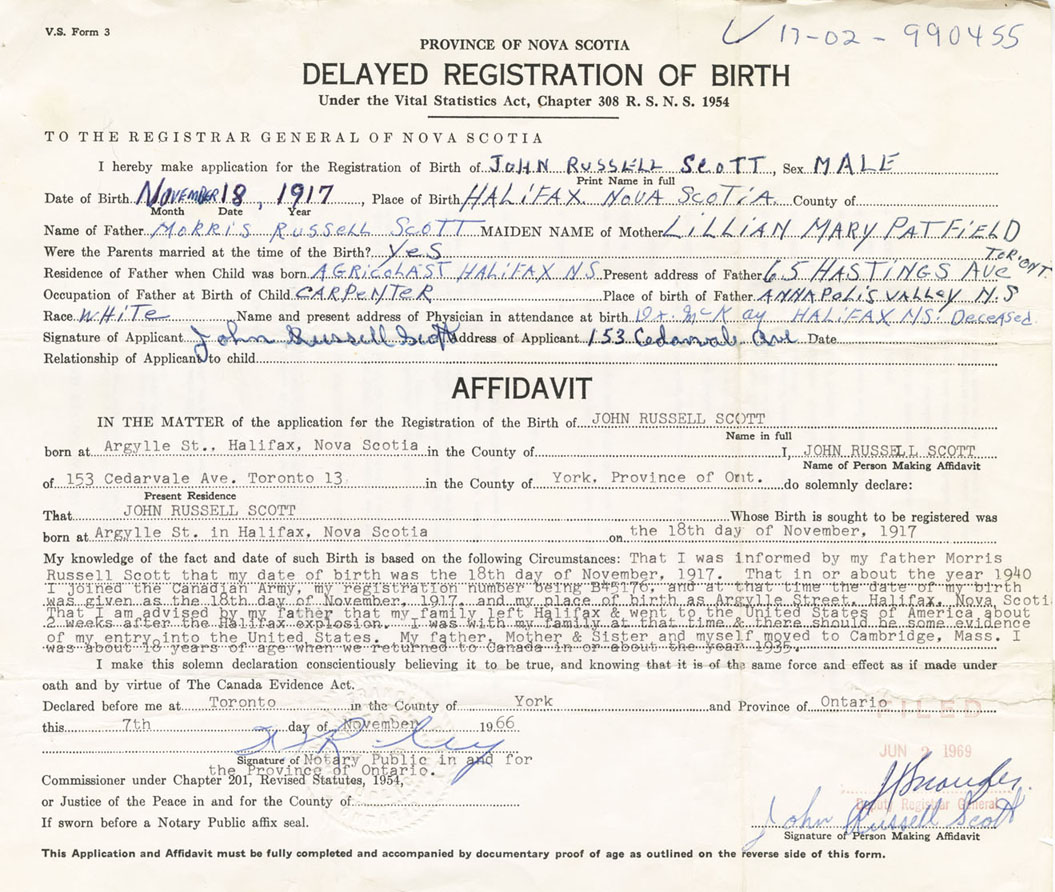 V.S. Form 3
17-02-990455
PROVINCE OF NOVA SCOTIA
DELAYED REGISTRATION OF BIRTH
Under the Vital Statistics Act, Chapter 308 R. S. N. S. 1954
TO THE REGISTRAR GENERAL OF NOVA SCOTIA
I hereby make application for the Registration of Birth of JOHN RUSSELL SCOTT, Sex MALE
Print Name in full
Date of Birth NOVEMBER 18, 1917, Place of Birth HALIFAX NOVA SCOTIA County of
Month Date Year
Name of Father MORRIS RUSSELL SCOTT MAIDEN NAME of Mother LILLIAN MARY PATFIELD
Were the Parents married at the time of the Birth? Yes
TOR ONT.
Residence of Father when Child was born AGRICOLA ST HALIFAX N.S. Present address of Father 65 HASTINGS AVE
Occupation of Father at Birth of Child CARPENTER Place of birth of Father ANNAPOLIS VALLEY N.S
Race WHITE Name and present address of Physician in attendance at birth Dr. McKay HALIFAX N.S. Deceased
Signature of Applicant John Russell Scott Address of Applicant 153 Cedarvale Ave Date
Relationship of Applicant to child
AFFIDAVIT
IN THE MATTER of the application for the Registration of the Birth of JOHN RUSSELL SCOTT
Name in full
born at Argylle St., Halifax, Nova Scotia in the County of I, JOHN RUSSELL SCOTT
Name of Person Making Affidavit
of 153 Cedarvale Ave. Toronto 13 in the County of York, Province of Ont. do solemnly declare:
Present Residence
That JOHN RUSSELL SCOTT Whose Birth is sought to be registered was
born at Argylle St. in Halifax, Nova Scotia on the 18th day of November, 1917
My knowledge of the fact and date of such Birth is based on the following Circumstances: That I was informed by my father Morris
Russell Scott that my date of birth was the 18th day of November, 1917. That in or about the year 1940
I joined the Canadian Army, my registration number being B45176, and at that time the date of my birth
was given as the 18th day of November, 1917. and my place of birth as Argylle Street, Halifax, Nova Scoti
That I am advised by my father that my family left Halifax & went to the United States of America about
2 weeks after the Halifax explosion. I was with my family at that time & there should be some evidence
of my entry into the United States. My father, Mother & Sister and myself moved to Cambridge, Mass. I
was about 18 years of age when we returned to Canada in or about the year 1935.
I make this solemn declaration conscientiously believing it to be true, and knowing that it is of the same force and effect as if made under
oath and by virtue of The Canada Evidence Act.
Declared before me at Toronto in the County of York and Province of Ontario
this 7th day of November 1966
FILED
JUN 2 1969
Signature of Notary Public in and for
the Province of Ontario.
Commissioner under Chapter 201, Revised Statutes, 1954,
Deputy Registrar General
or Justice of the Peace in and for the County of
John Russell Scott
If sworn before a Notary Public affix seal.
Signature of Person Making Affidavit
This Application and Affidavit must be fully completed and accompanied by documentary proof of age as outlined on the reverse side of this form.